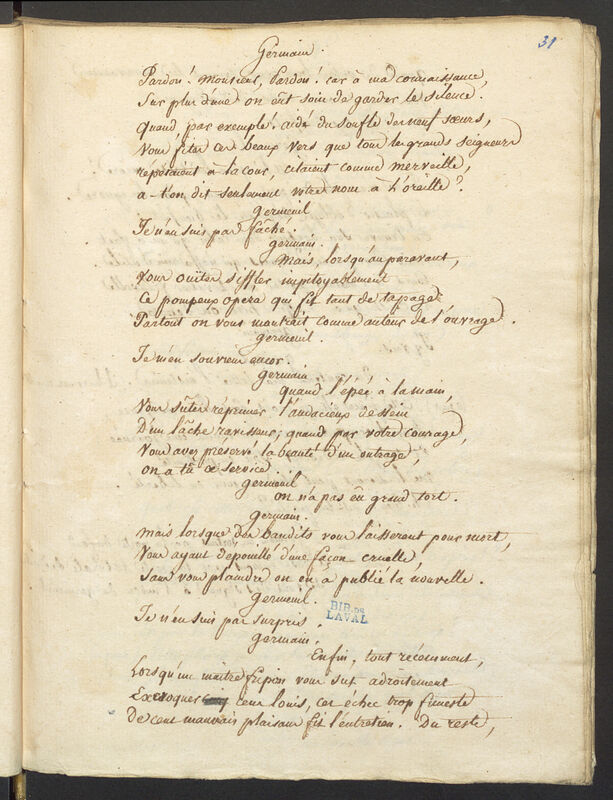 31
Germain.
Pardon! Monsieur, Pardon! car à ma connaissance,
Sur plus d'une on eût soin de garder le silence.
Quand, par exemple! aidé du soufle des neuf sœurs,
Vous fites ces beaux vers que tous les grands seigneurs
repetaient à la cour, citaient comme merveille,
a-t'on dit seulement votre nom à l'oreille?
germeuil
Je n'en suis pas fâché.
germain.
Mais, lorsqu'auparavant,
Vous ouites siffler impitoyablement
Ce pompeux opera qui fit tant de tapage
Partout on vous montrait comme auteur de l'ouvrage.
germeuil.
Je m'en souviens encor.
germain
quand l'épée à la main,
Vous sûtes réprimer l'audacieux dessein
D'un lâche ravisseur; quand par votre courage,
Vous avez preservé la beauté d'un outrage,
on a tû ce service.
germeuil
on n'a pas eu grand tort.
germain.
Mais lorsque des bandits vous laisserent pour mort,
Vous ayant depouillé d'une façon cruelle,
Sans vous plaindre on en a publié la nouvelle.
germeuil.
Je n'en suis pas surpris.
BIB. DE
LAVAL
germain.
Enfin, tout récemment,
Lorsqu'un maitre fripon vous sut adroitement
Excroquer cent louis, cet échec trop funeste
De cent mauvais plaisans fit l'entretien. Du reste,